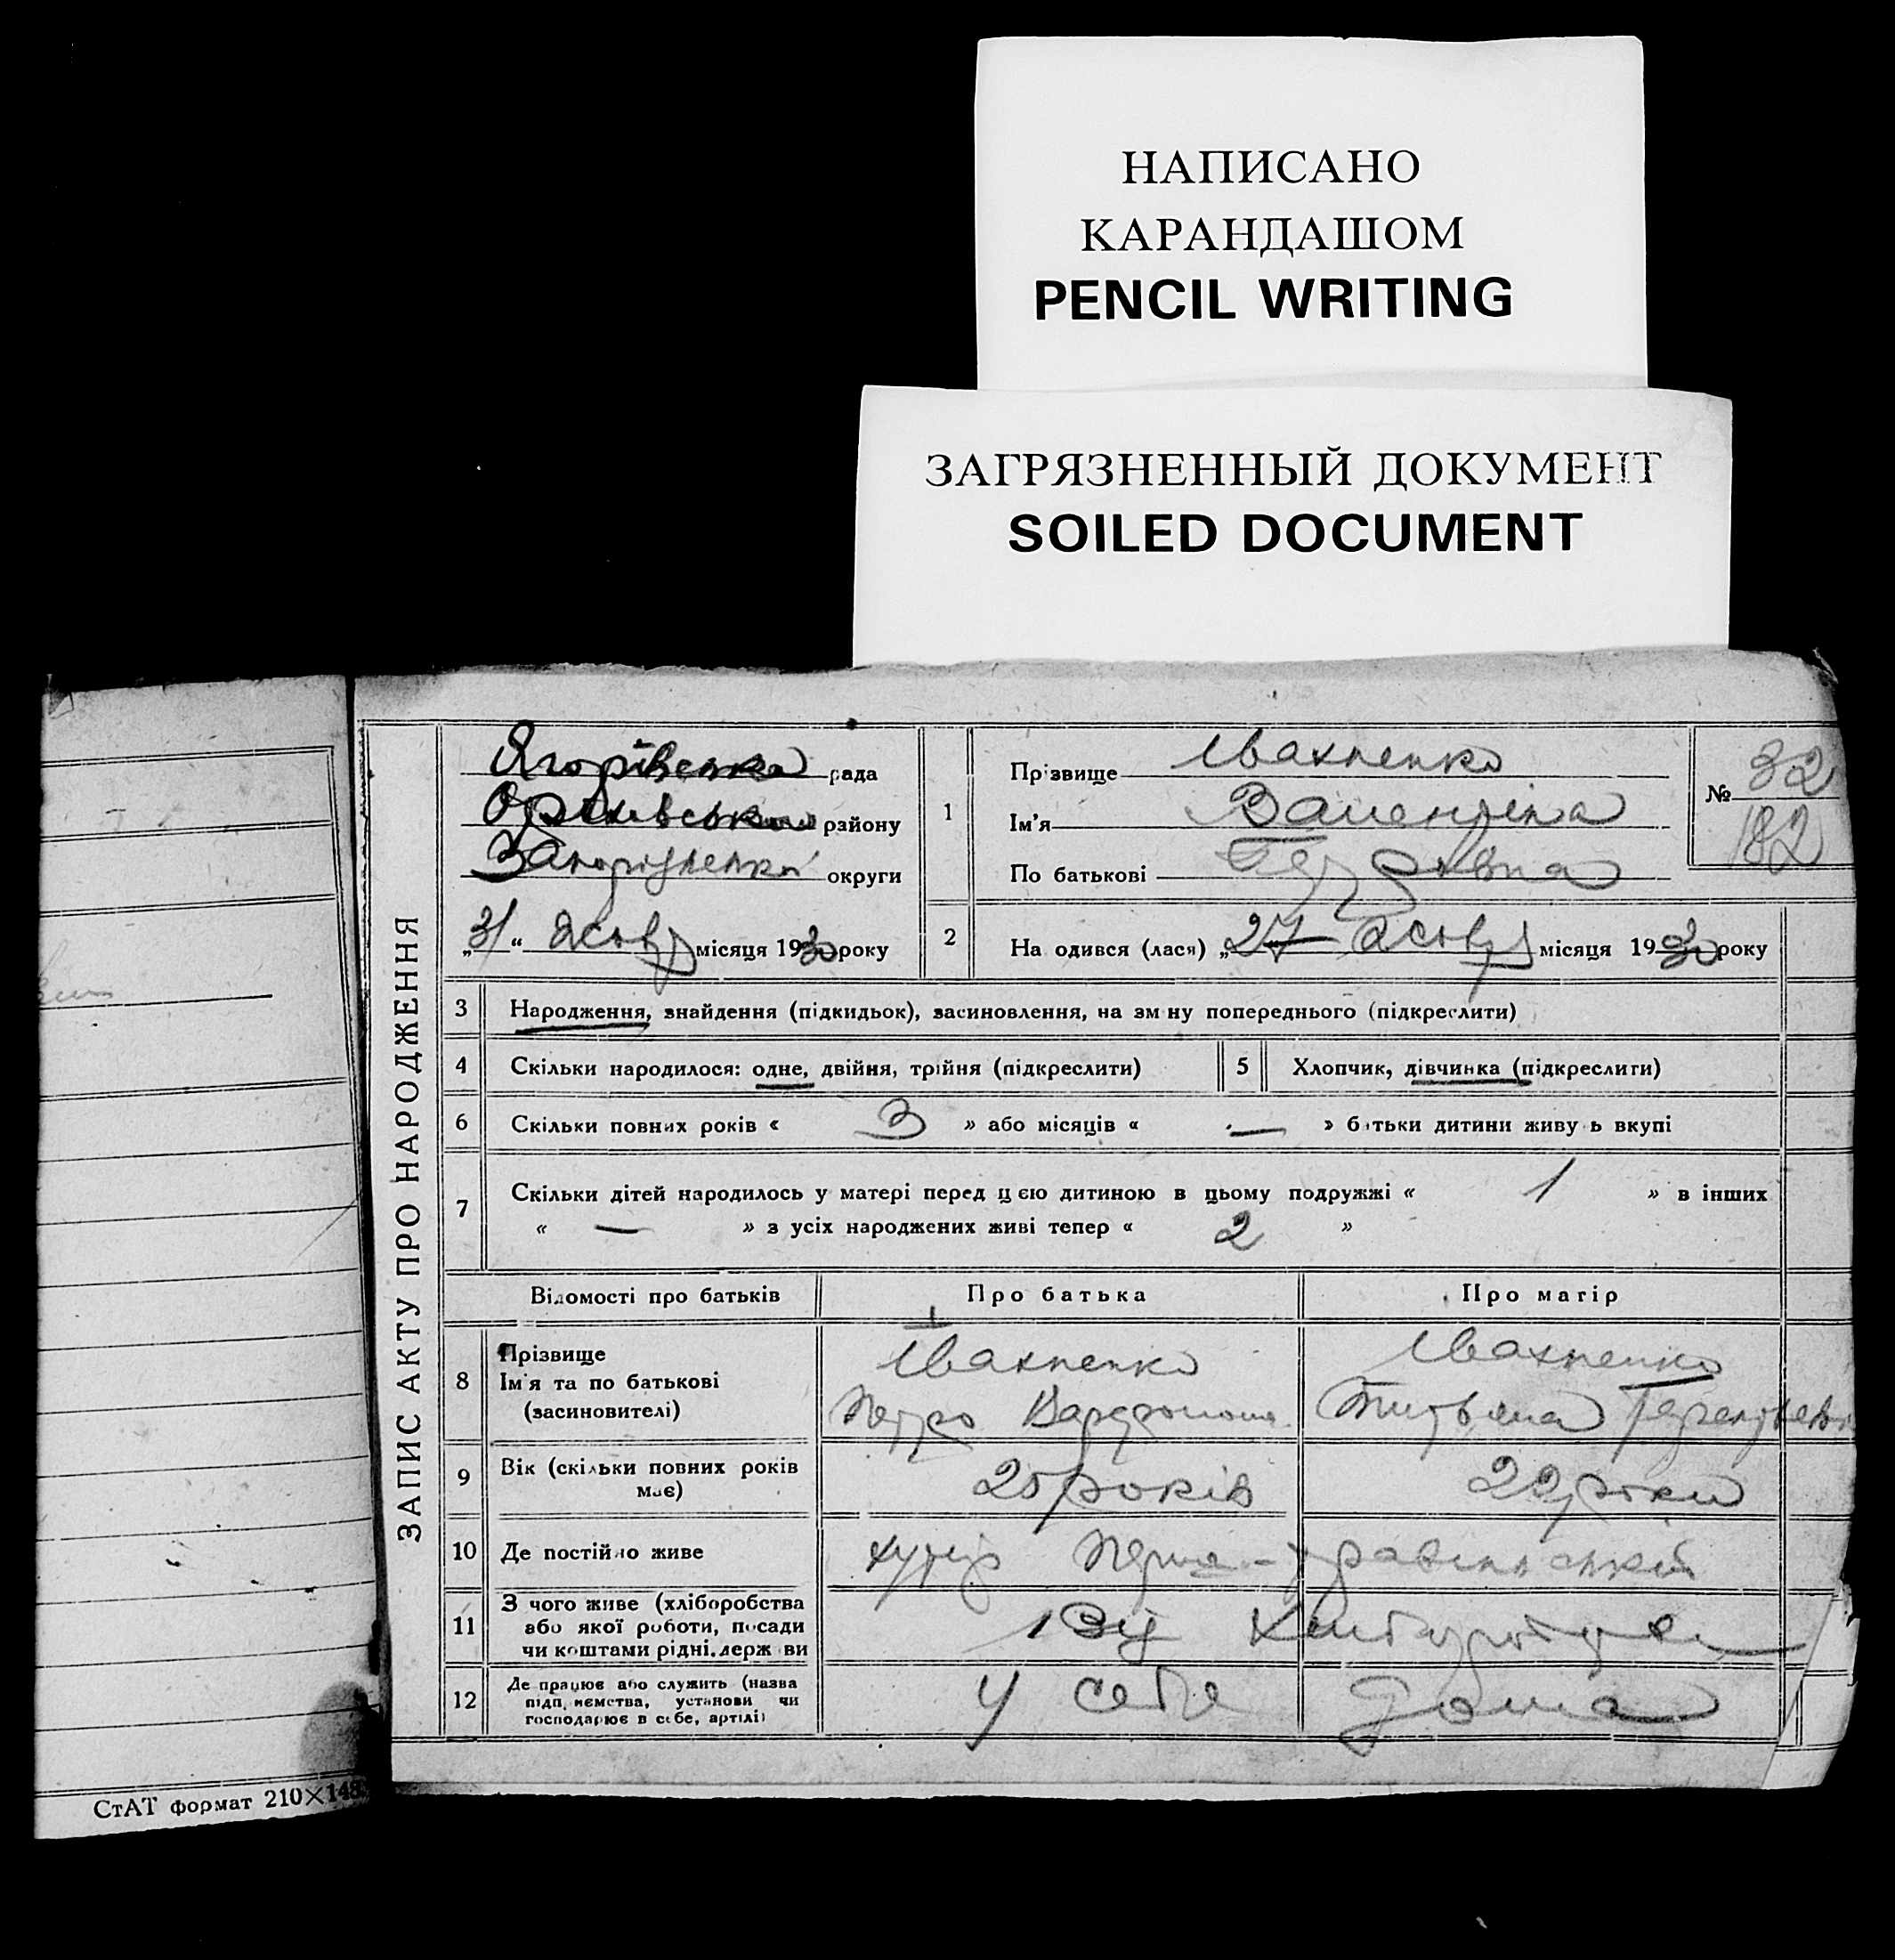 НАПИСАНО
КАРАНДАШОМ
PENCIL WRITING
ЗАГРЯЗНЕННЫЙ ДОКУМЕНТ
SOILED DOCUMENT
ЗАПИС АКТУ ПРО НАРОДЖЕННЯ
Ягорівська рада
Оріхівського району
округи
„31“ жовт місяця 1930 року
1
Прізвище Івахненко
Ім'я Валентіна
По батькові Петровна
№ 32
182
2
На одився (лася) „27 жовт місяця 1930 року
3 Народження, знайдення (підкидьок), засиновлення, на зм ну попереднього (підкреслити)
4 Скільки народилося: одне, двійня, трійня (підкреслити)
5 Хлопчик, дівчинка (підкреслити)
6 Скільки повних років « 3 » або місяців « — » б тьки дитини живу ь вкупі
7 Скільки дітей народилось у матері перед цєю дитиною в цьому подружжі « 1 » в інших
« — » з усіх народжених живі тепер « 2 »
Відомості про батьків Про батька Про матір
8 Прізвище
Ім'я та по батькові
(засиновителі)
Івахненко
Петро
Івахненко
Титьяна
9 Вік (скільки повних років
має)
25 років
22 роки
10 Де постійно живе
хутір
11 З чого живе (хліборобства
або якої роботи, посади
чи коштами рідні, держ ви
12 Де працює або служить (назва
підп иємства, установи чи
господарює в себе, артілі)
У себе дома
СтАТ формат 210×148